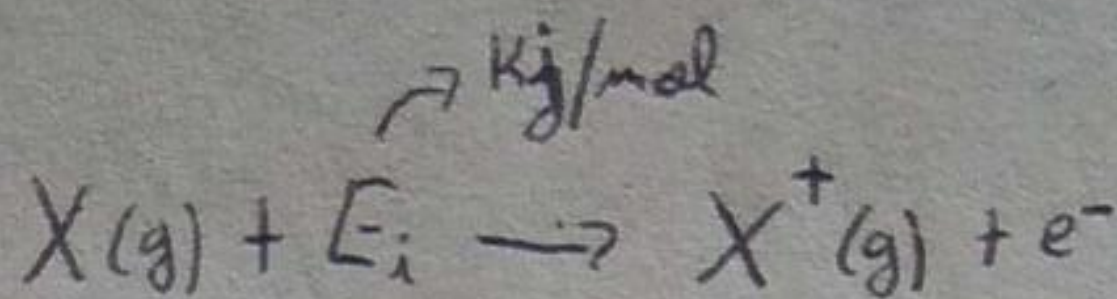 Kj/mol
X(g) + Ei → X⁺(g) + e⁻